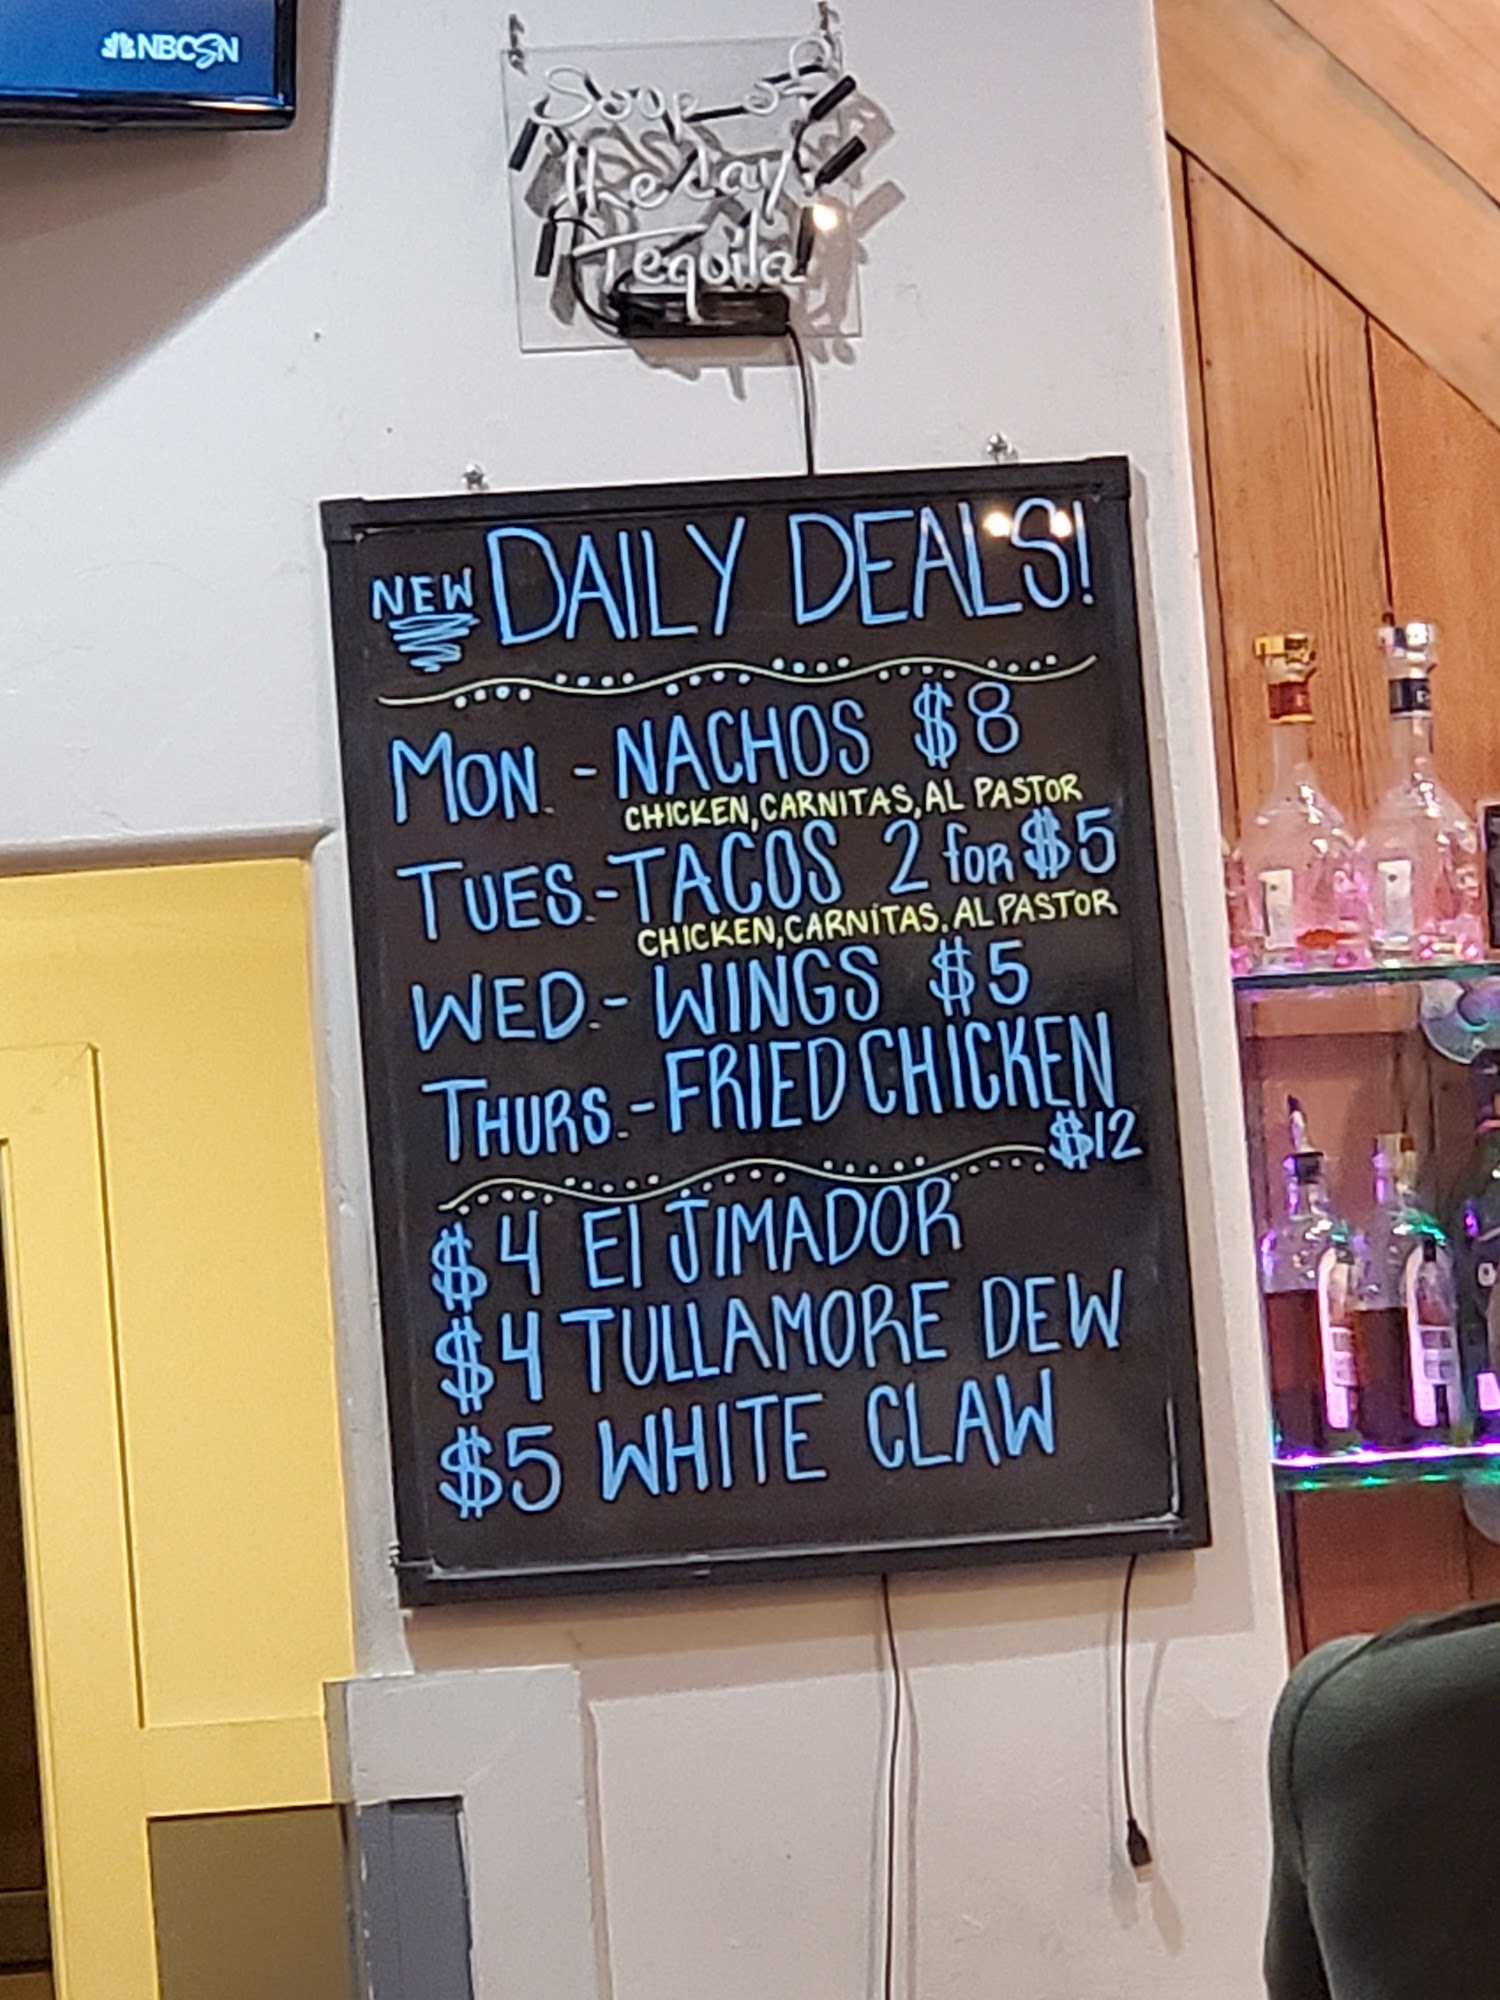 NBCSN
Soup of
the day
Tequila
NEW DAILY DEALS!
MON. - NACHOS $8
CHICKEN, CARNITAS, AL PASTOR
TUES. - TACOS 2 for $5
CHICKEN, CARNITAS, AL PASTOR
WED. - WINGS $5
THURS. - FRIED CHICKEN
$12
$4 El JIMADOR
$4 TULLAMORE DEW
$5 WHITE CLAW